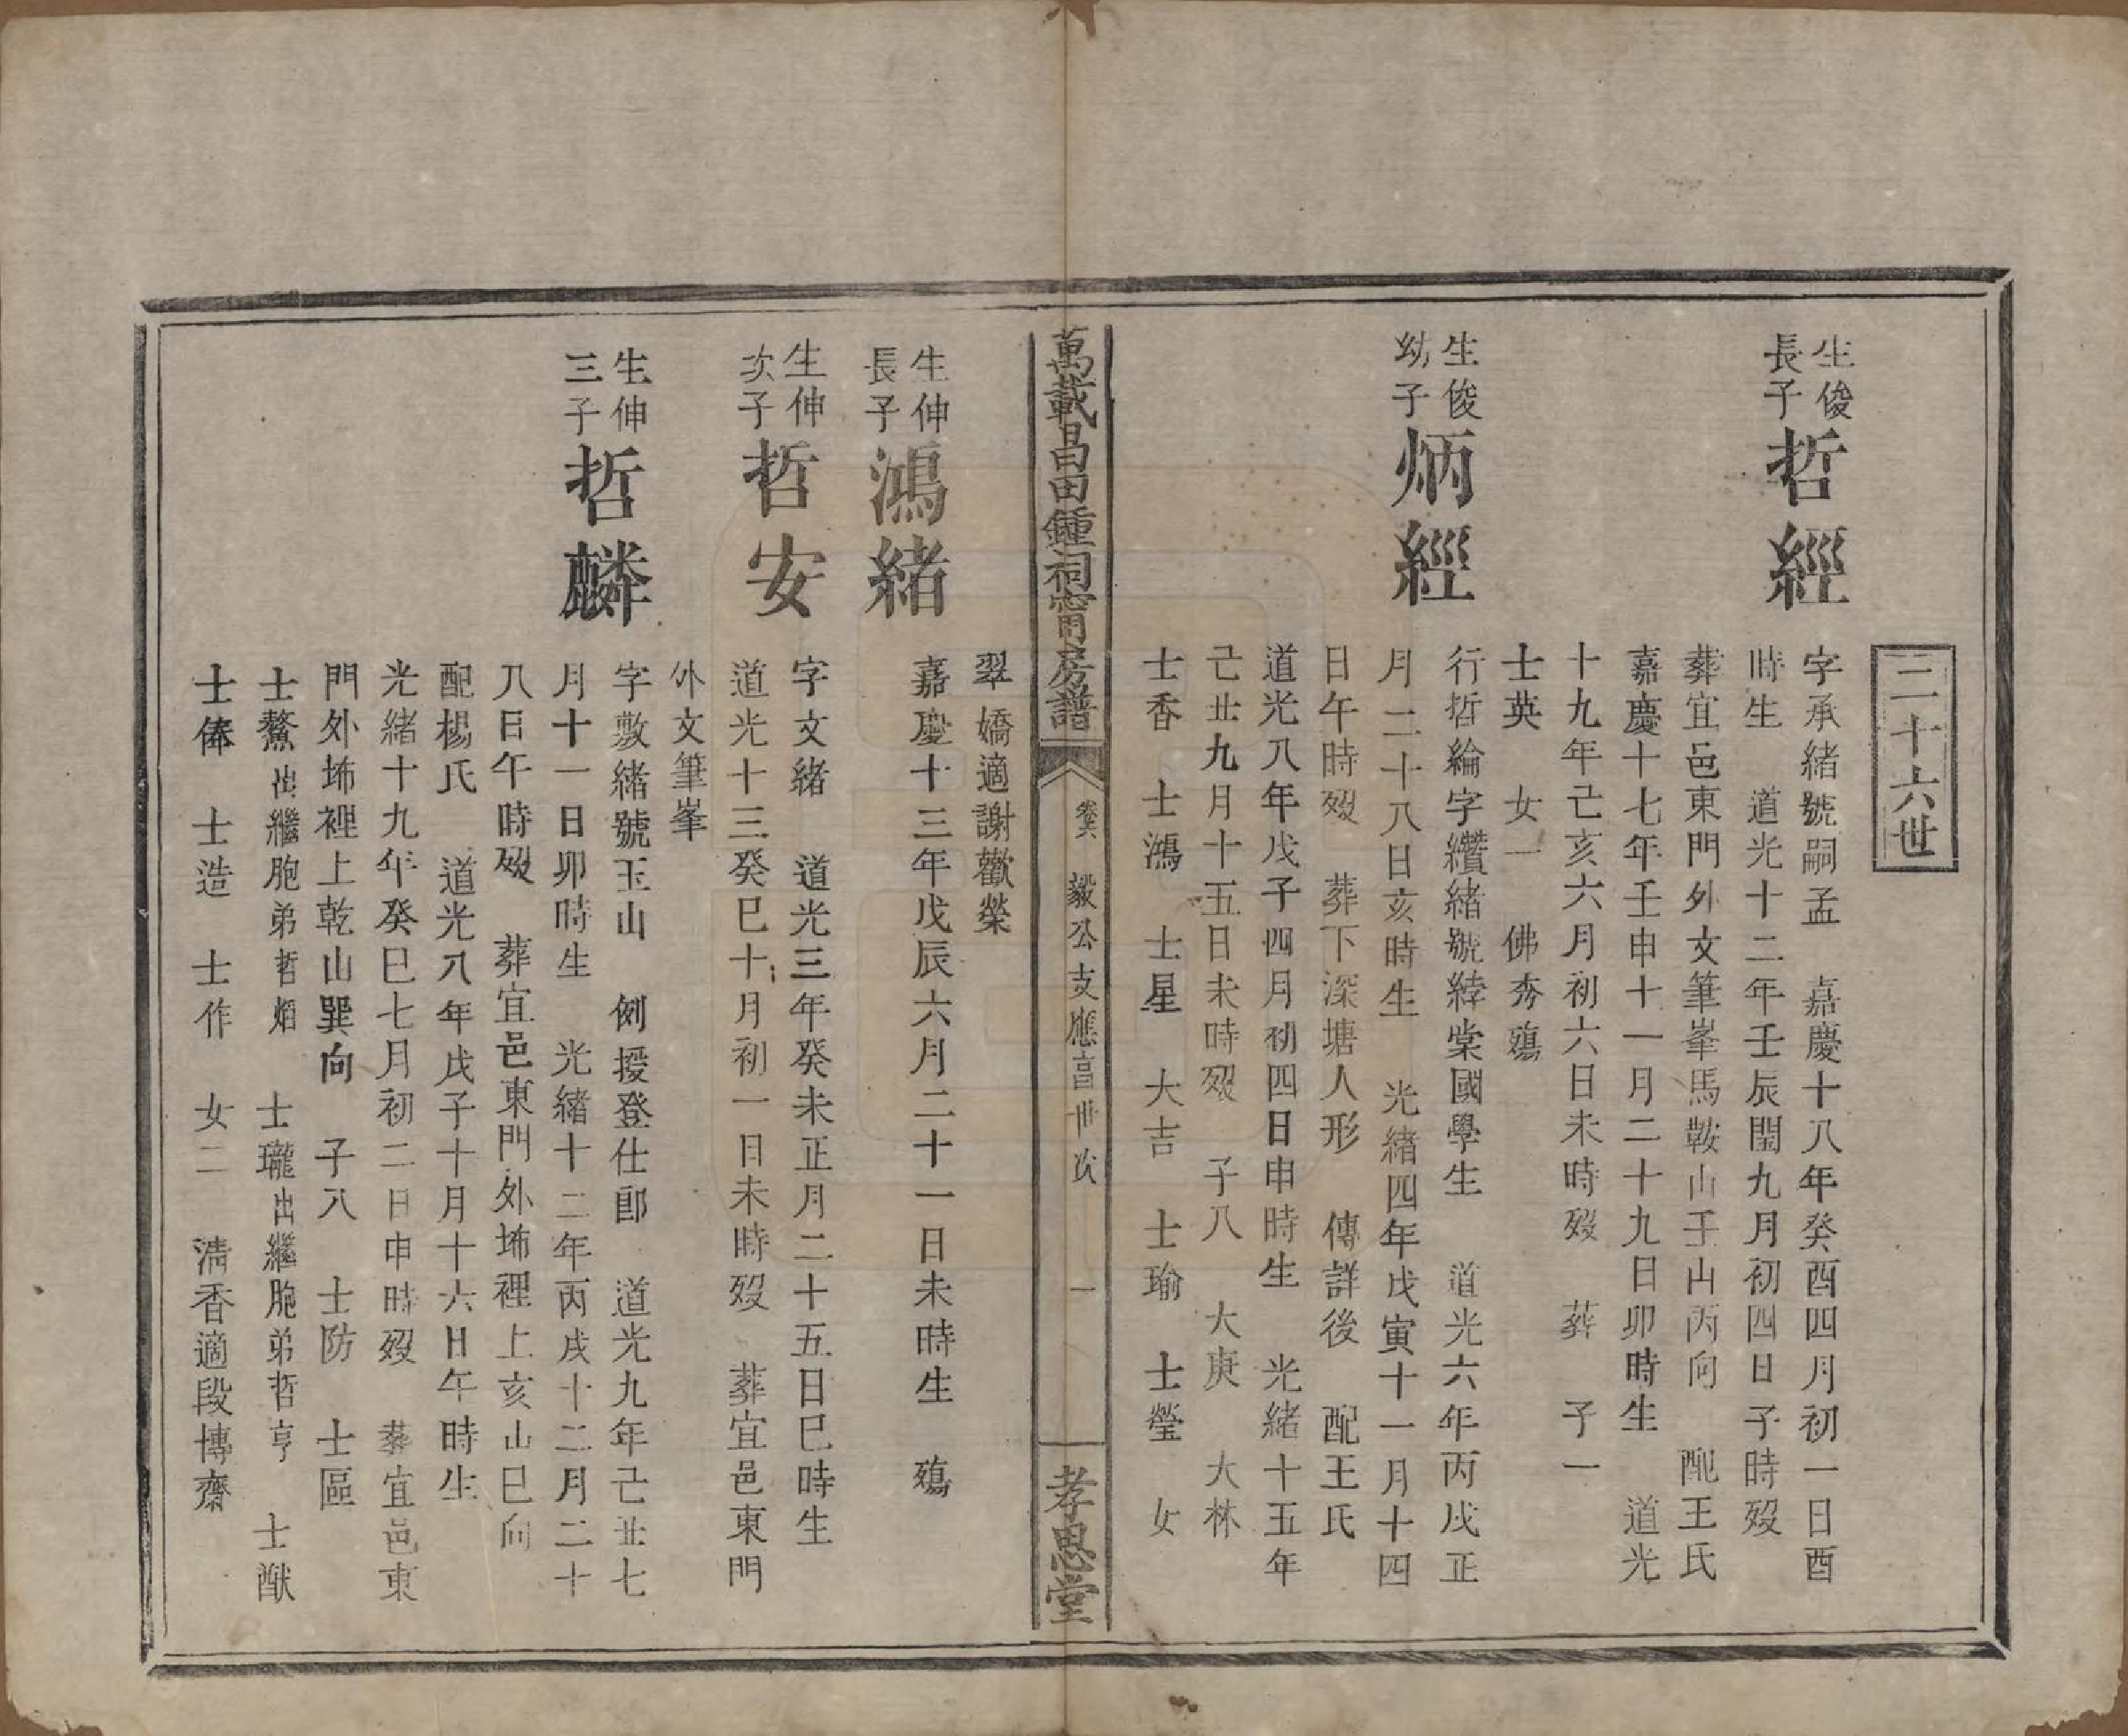 二十六世
生俊
長子
哲經
字承緒號嗣孟　嘉慶十八年癸酉四月初一日酉
時生　道光十二年壬辰閏九月初四日子時歿
葬宜邑東門外文筆峯馬鞍山壬山丙向　配王氏
嘉慶十七年壬申十一月二十九日卯時生　道光
十九年己亥六月初六日未時歿　葬　子一
士英　女一　佛秀殤
生俊
幼子
炳經
行哲綸字纘緒號緯棠國學生　道光六年丙戌正
月二十八日亥時生　光緒四年戊寅十一月十四
日午時歿　葬下深塘人形　傳詳後　配王氏
道光八年戊子四月初四日申時生　光緒十五年
己丑九月十五日未時歿　子八　大庚　大林
士香　士鴻　士星　大吉　士瑜　士瑩　女
萬載昌田鍾祠甯房譜
卷六　毅公支應昌世次　一
孝思堂
翠嬌適謝歡榮
生伸
長子
鴻緒
嘉慶十三年戊辰六月二十一日未時生　殤
生伸
次子
哲安
字文緒　道光三年癸未正月二十五日巳時生
道光十三癸巳十月初一日未時歿　葬宜邑東門
外文筆峯
生伸
三子
哲麟
字敷緒號玉山　例授登仕郎　道光九年己丑七
月十一日卯時生　光緒十二年丙戌十二月二十
八日午時歿　葬宜邑東門外㘵裡上亥山巳向
配楊氏　道光八年戊子十月十六日午時生
光緒十九年癸巳七月初二日申時歿　葬宜邑東
門外㘵裡上乾山巽向　子八　士防　士區
士鰲出繼胞弟哲　士瓏出繼胞弟哲亨　士猷
士俸　士造　士作　女二　清香適段博齋